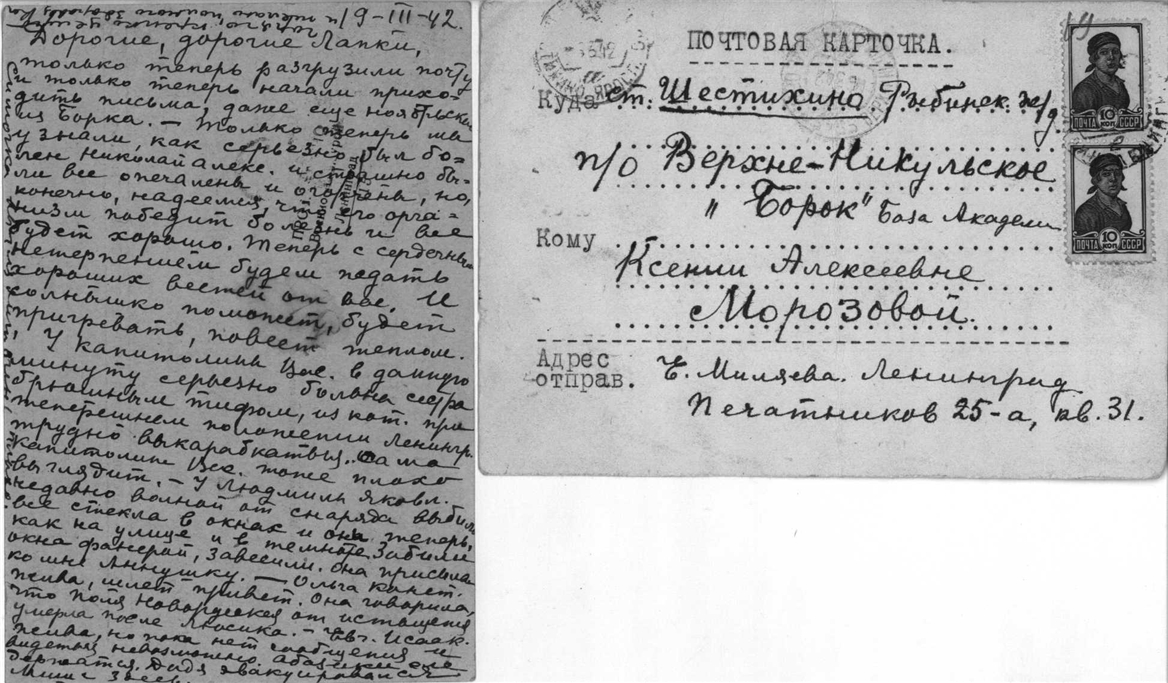 19-III-42.
Дорогие, дорогие Лапки,
только теперь разгрузили почту
и только теперь начали прихо-
дить письма, даже еще ноябрьские
из Борка. – Только теперь мы
узнали, как серьезно был бо-
лен Николай Алекс. и страшно бы-
ли все опечалены и огорчены, но,
конечно, надеемся, что его орга-
низм победит болезнь и все
будет хорошо. Теперь с сердечным
нетерпением будем ждать
хороших вестей от вас. И
солнышко поможет, будет
пригревать, повеет теплом.
У Капитолины Вас. в данную
минуту серьезно больна сестра
брюшным тифом, из кот. при
теперешнем положении Ленингр.
трудно выкарабкаться. Сама
Капитолина Вас. тоже плохо
выглядит. – У Людмилы Яковл.
недавно волной от снаряда выбило
все стекла в окнах и она теперь,
как на улице и в темноте. Забили
окна фанерой, завесили. Она присыла
ко мне Аннушку. – Ольга Конст.
жива, шлет привет. Она говорила,
что Поля от истощения
умерла после Люсика. – Евг. Исаак.
жива, но пока нет сообщения и
видеться невозможно.
держатся. Дидя эвакуировался
ПОЧТОВАЯ КАРТОЧКА.
Куда ст. Шестихино Рыбинск. ж/д.
п/о Верхне-Никульское
„Борок" База Академии
Кому
Ксении Алексеевне
Морозовой.
Адрес отправ. Е. Миляева. Ленинград
Печатников 25-а, кв. 31.
ПОЧТА 10 КОП СССР
ПОЧТА 10 КОП СССР